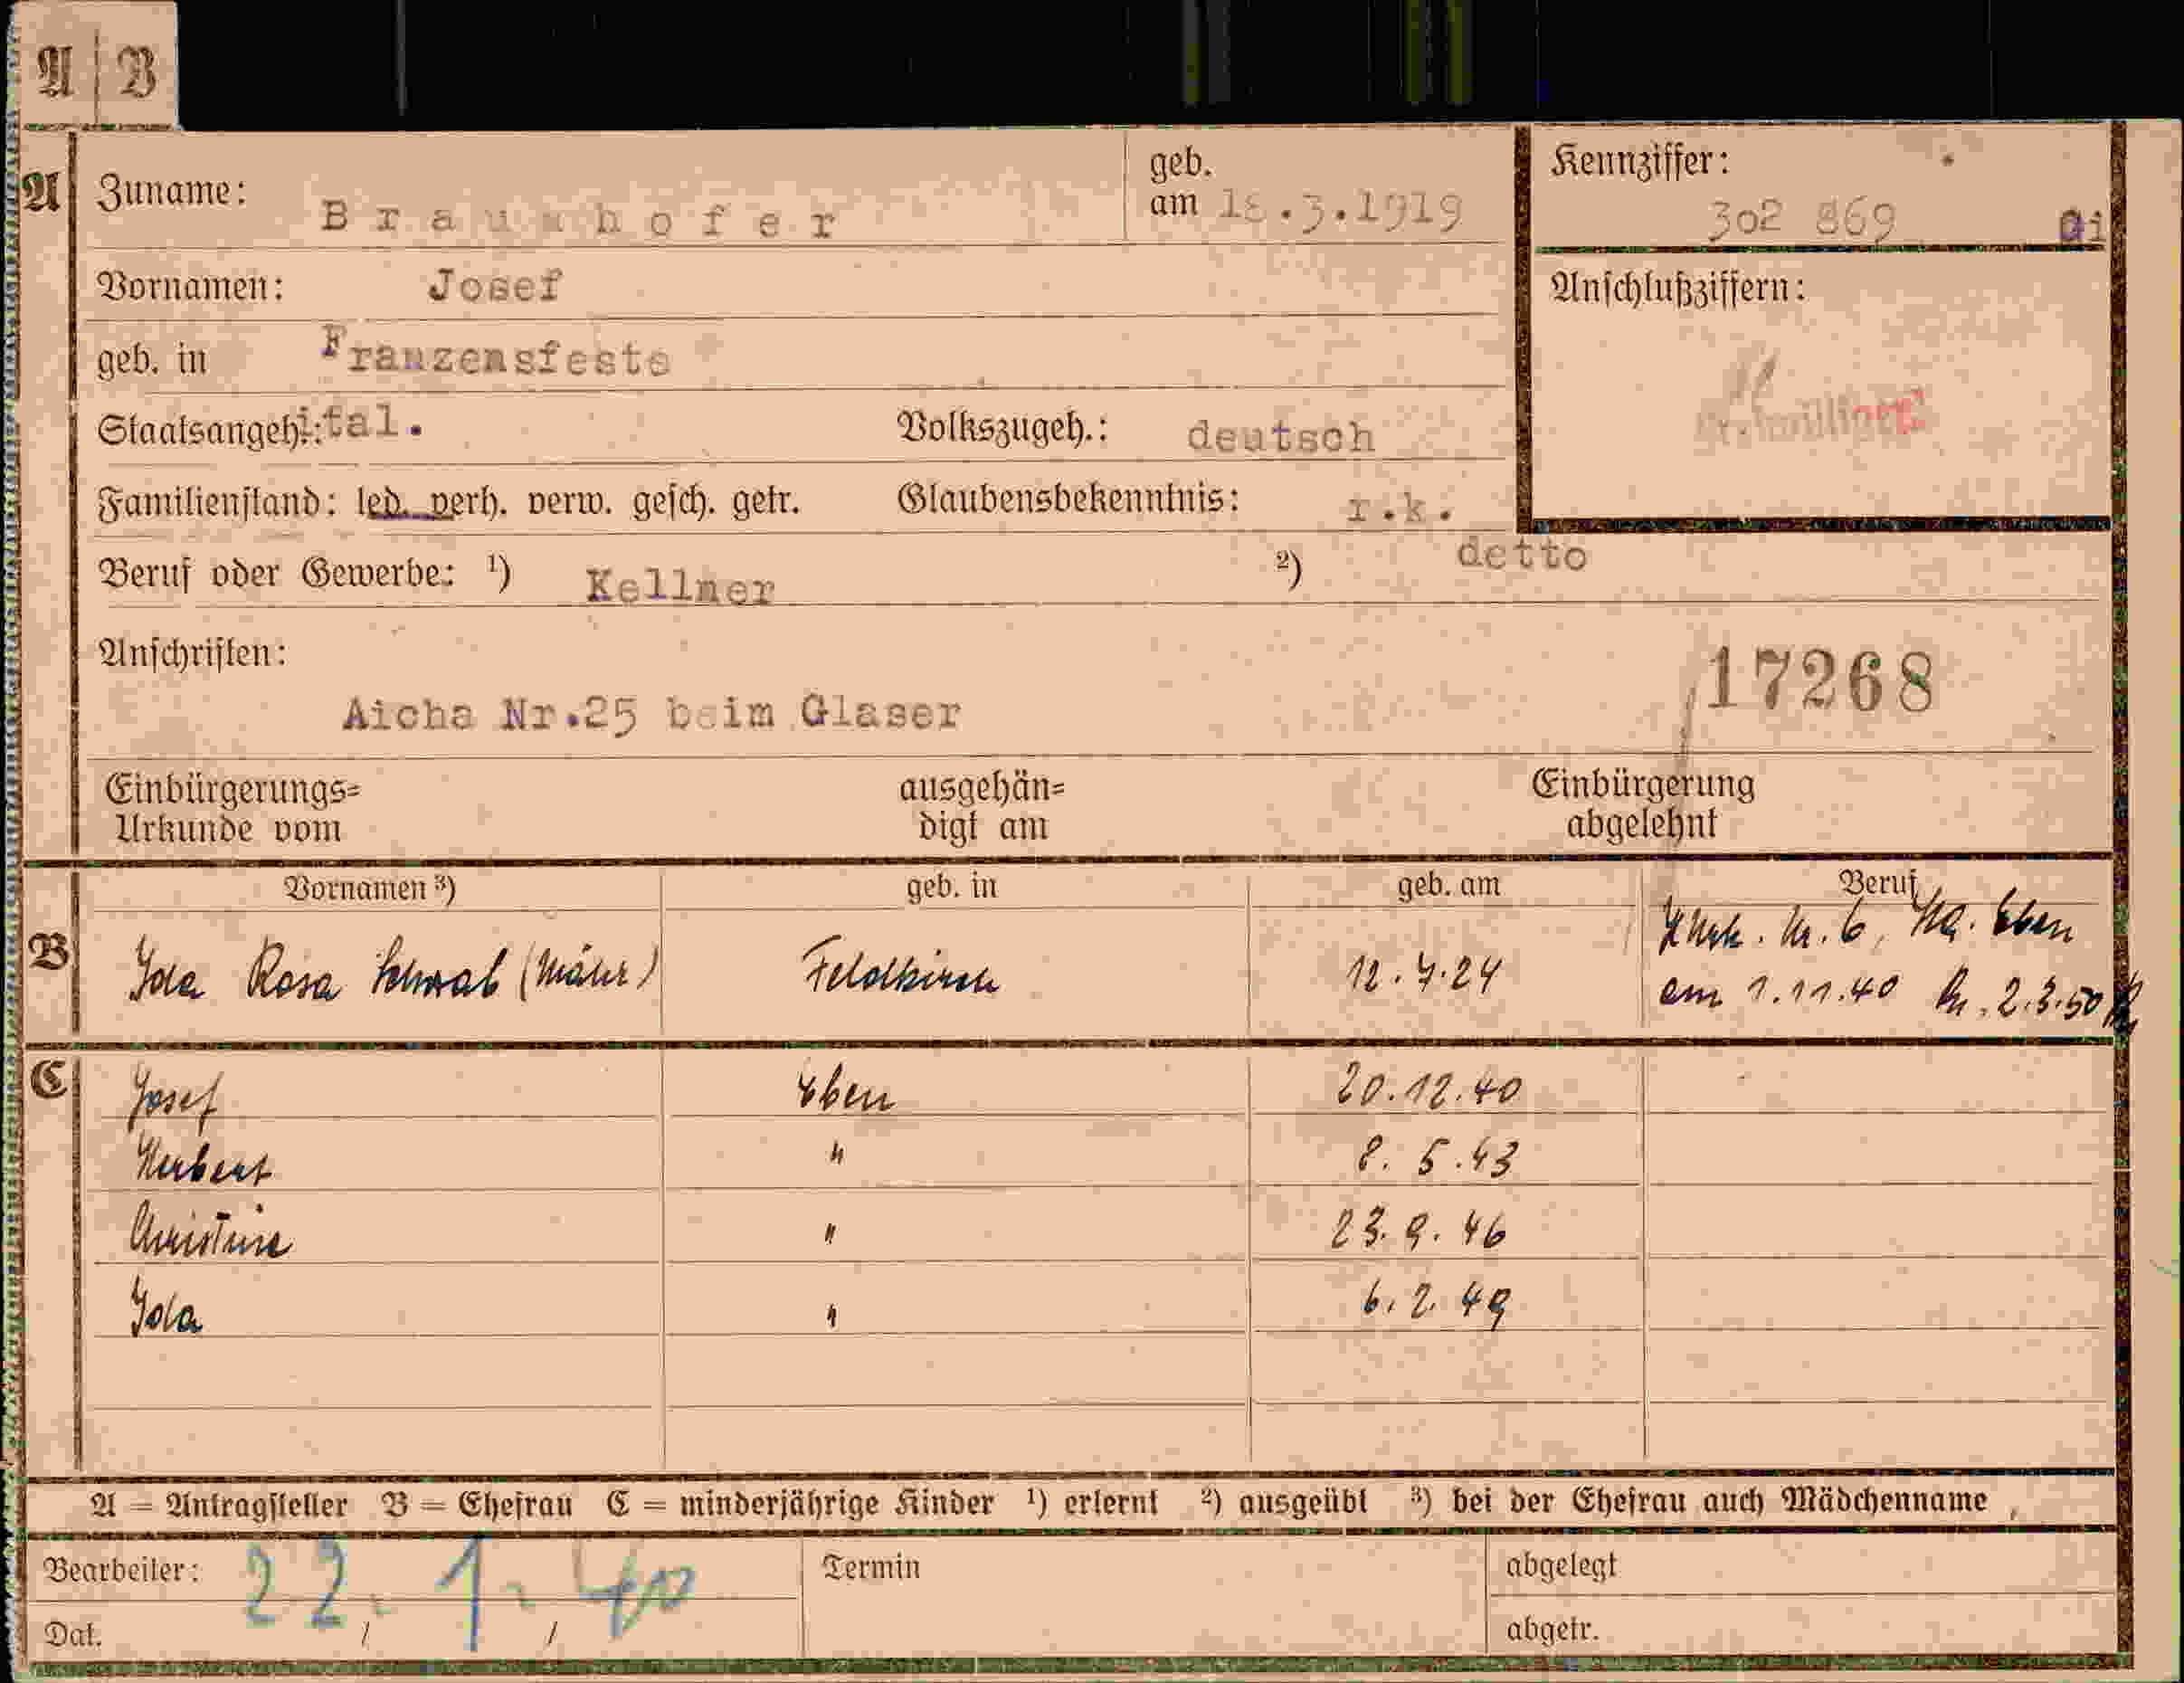 A B
A Zuname: Braunhofer geb. am 18.3.1919 Kennziffer: 302 869 Gi
Vornamen: Josef Anschlußziffern:
geb. in Franzensfeste
Staatsangeh.: ital. Volkszugeh.: deutsch
Familienstand: led. verh. verw. gesch. getr. Glaubensbekenntnis: r.k.
Beruf oder Gewerbe: 1) Kellner 2) detto
Anschriften: 17268
Aicha Nr.25 beim Glaser
Einbürgerungs= ausgehän= Einbürgerung
Urkunde vom digt am abgelehnt
Vornamen 3) geb. in geb. am Beruf
B Ida Rosa Schwab (Mähr) Feldkirch 12.7.24
Nr. 6, Eben
am 1.11.40 2.3.50
C Josef Eben 20.12.40
Herbert " 8. 5.43
Christine " 23. 9. 46
Ida " 6. 2. 49
A = Antragsteller B = Ehefrau C = minderjährige Kinder 1) erlernt 2) ausgeübt 3) bei der Ehefrau auch Mädchenname
Bearbeiter: 22. 1. 40 Termin abgelegt
Dat. / / abgetr.